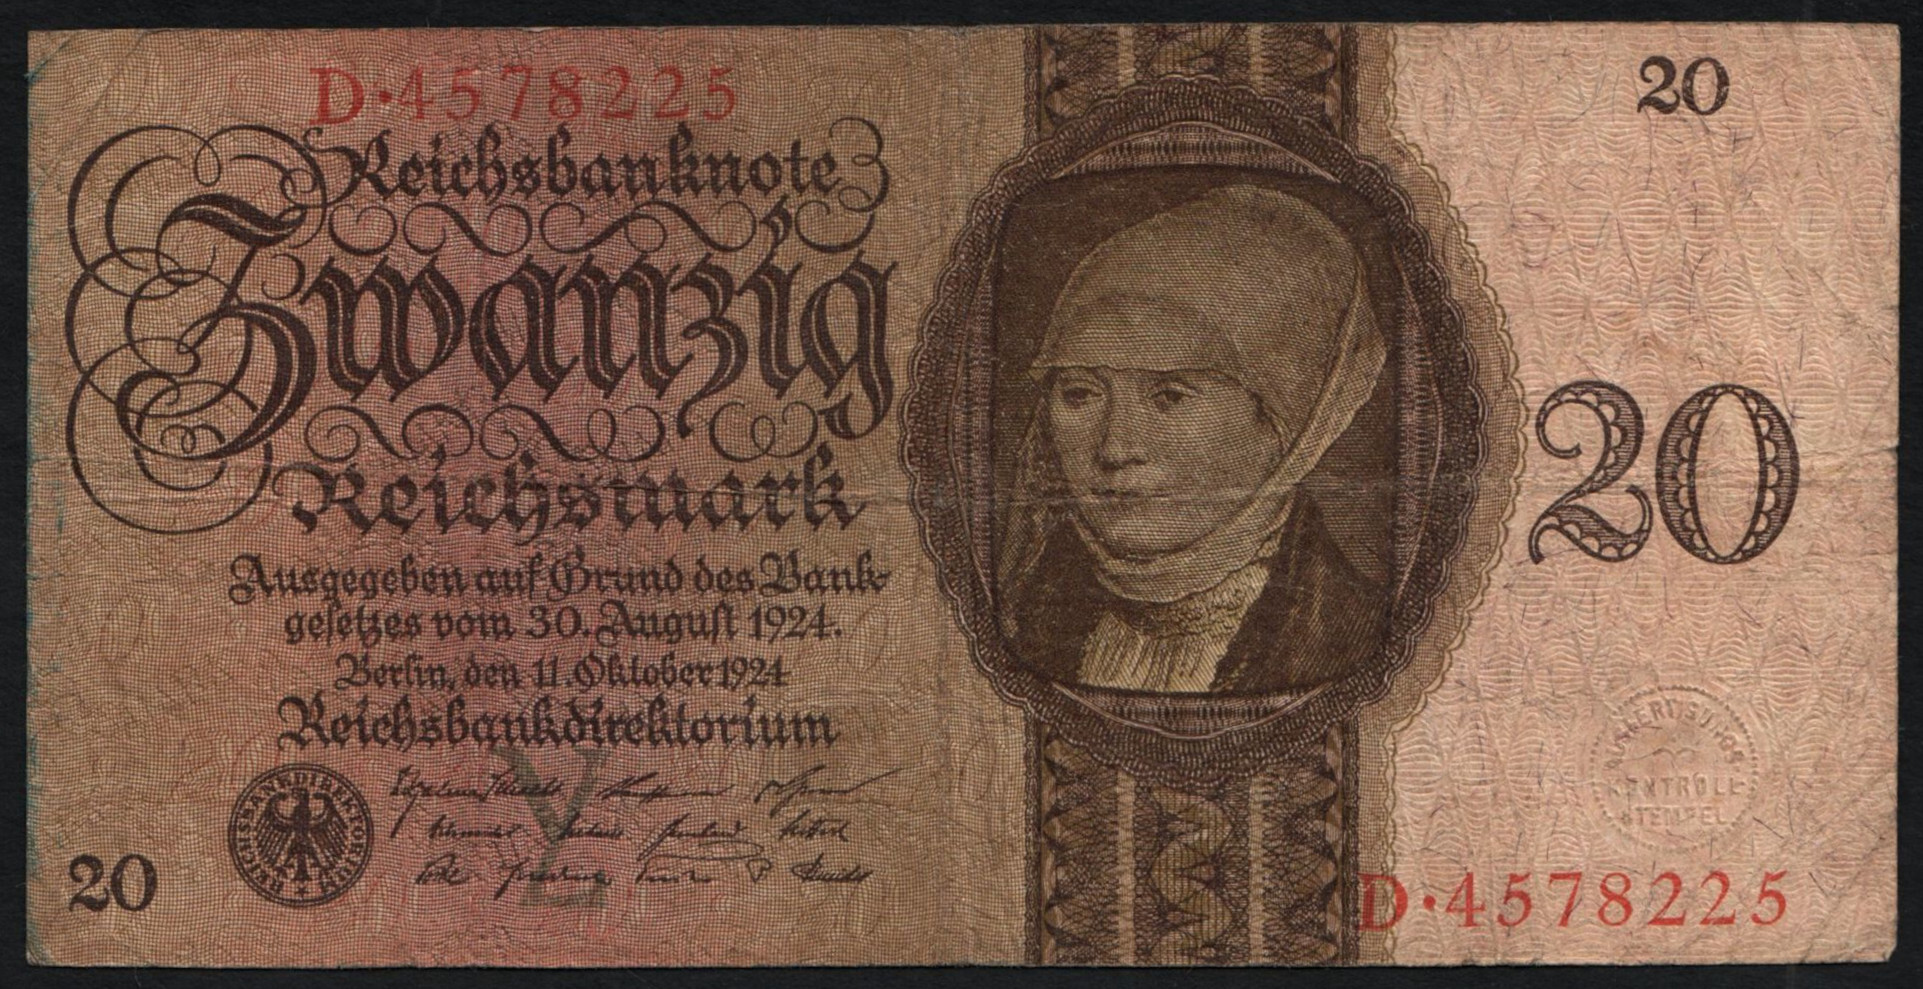 D·4578225
20
Reichsbanknote
Zwanzig
Reichsmark
20
Ausgegeben auf Grund des Bank-
gesetzes vom 30. August 1924.
Berlin, den 11. Oktober 1924
Reichsbankdirektorium
REICHSBANKDIREKTORIUM
Y
KONTROLL-
STEMPEL
20
D·4578225